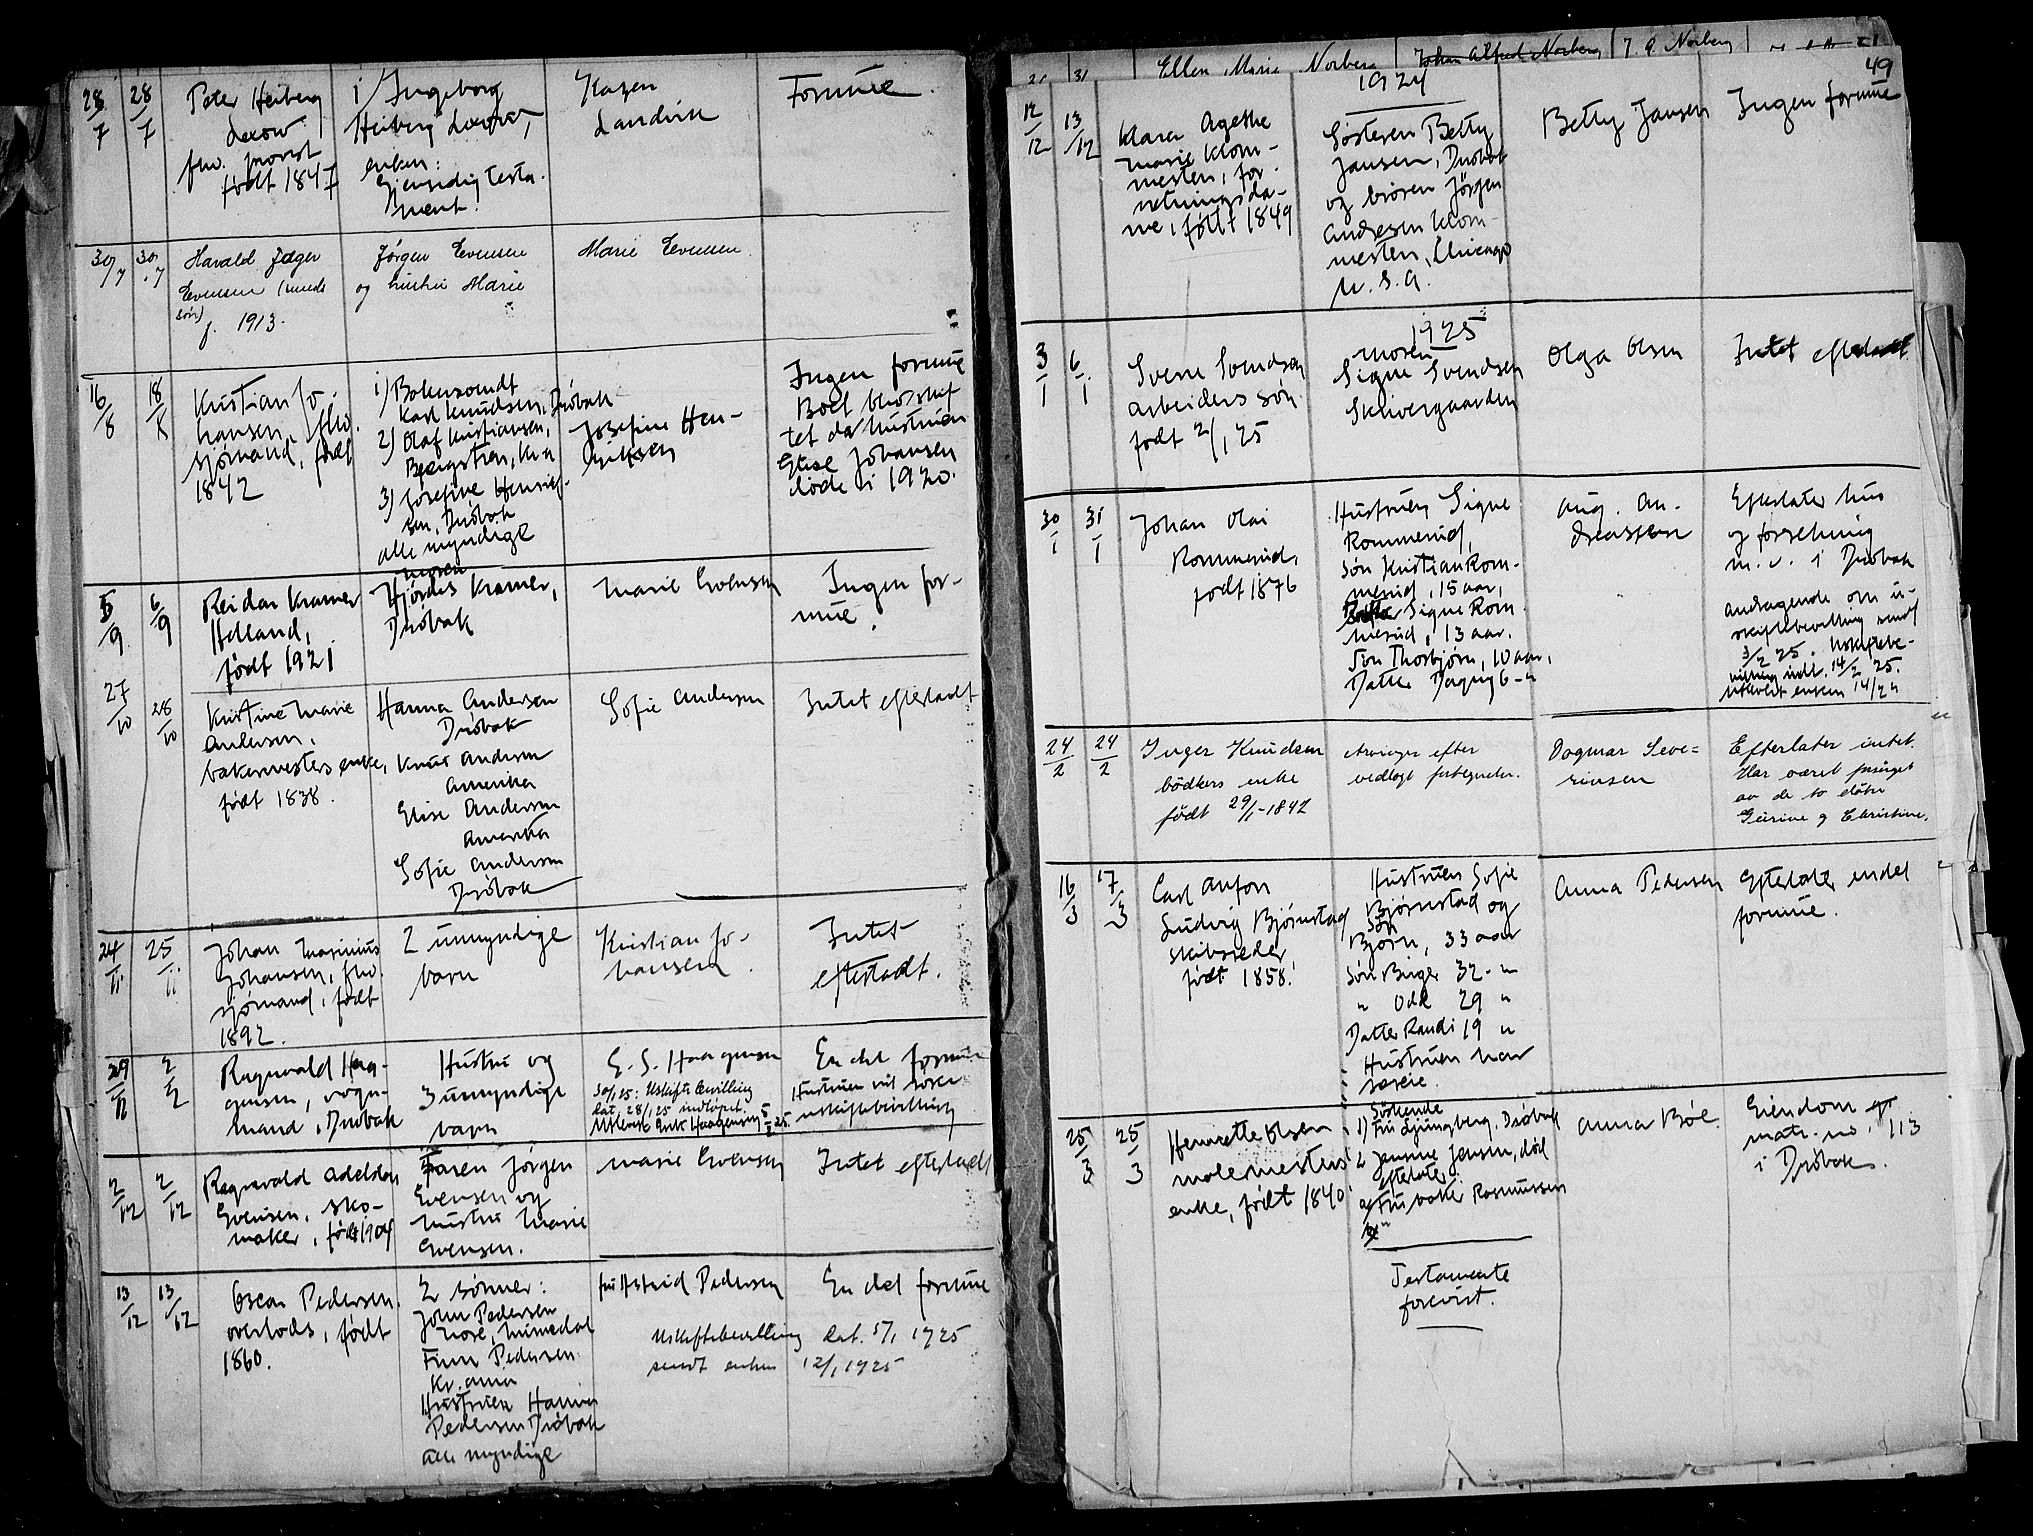 28/7
28/7
Peter Heiberg
Lexow
fhv. provst
født 1847
1/ Ingeborg
Heiberg Lexow,
enken:
Gjensidig testa-
ment.
Karen
Landvik
Formue.
30/7
30/7
Harald Jæger
Evensen
søn)
f. 1913.
Jørgen Evensen
og hustru Marie
Marie Evensen
16/8
18/8
Kristian Jo-
hansen, fhv.
sjømand, født
1842
1)
Karl Knudsen, Drøbak
2) Olaf Kristiansen,
Kr.a
3) Josefine Henrik-
sen, Drøbak
alle myndige
Josefine Hen-
riksen
Ingen formue
Boet blev skif
tet da hustruen
Elise Johansen
døde i 1920.
5/9
6/9
Reidar Kramer
Holland,
født 1921
moren
Hjørdis Kramer,
Drøbak
Marie Evensen
Ingen for-
mue.
27/10
28/10
Kristine Marie
Andersen,
bakermesters enke,
født 1838.
Hanna Andersen
Drøbak
Knut Andersen
Amerika
Elise Andersen
Amerika
Sofie Andersen
Drøbak
Sofie Andersen
Intet efterladt
24/11
25/11
Johan Magnius
Johansen, fhv.
sjømand, født
1892.
2 umyndige
barn
Kristian Jo-
hansen.
Intet
efterladt.
29/11
2/12
Ragnvald Haa-
gensen, vogn-
mand, Drøbak
Hustru og
3 umyndige
barn
E. S. Haagensen
30/1 25: Uskiftebevilling
dat. 28/1 25 indløpet.
Utlevert Enk Haagensen 5/2 25.
En del formue
Hustruen vil søke
uskiftebevilling
2/12
2/12
Ragnvald Adelsten
Evensen, sko-
maker, født 1904
Faren Jørgen
Evensen og
hustru Marie
Evensen.
Marie Evensen
Intet efterladt
13/12
13/12
Oscar Pedersen
overlods, født
1860.
2 sønner:
John Pedersen
Nore, Numedal
Finn Pedersen
Kr.ania
Hustruen Hanna
Pedersen Drøbak
alle myndige
fru Astrid Pedersen
En del formue
Uskiftebevilling dat. 5/1 1925
sendt enken 12/1 1925
Ellen Marie Norberg
Johan Alfred Norberg
J. A. Norberg
49
1924
12/12
13/12
Klara Agethe
Marie Klom-
mesten, for-
retningsda-
me, født 1849
Søsteren Betty
Jansen, Drøbak
og broren Jørgen
Andresen Klom-
mesten, Chicago
U.S.A.
Betty Jansen
Ingen formue
1925
3/1
6/1
Svenn Svendsen
arbeiders søn
født 2/1 25
moren
Signe Svendsen
Skrivergaarden
Olga Olsen
Intet efterladt
30/1
31/1
Johan Olai
Rommerud,
født 1876
Hustruen Signe
Rommerud,
søn Kristian Rom-
merud, 15 aar,
Signe Rom
merud, 13 aar.
Søn Thorbjørn, 10 aar,
Datter Dagny 6 - "
Aug. An-
dreassen
Efterlater hus
og forretning
m.v. i Drøbak
Andragende om u-
skiftebevilling sendt
3/2 25. Uskiftebe-
villing indl. 14/2 25.
utlevert enken 14/2 "
24/2
24/2
Inger Knudsen
bødkers enke
født 29/1-1842
Arvinger efter
vedlagt fortegnelse.
Dagmar Seve=
rinsen
Efterlater intet.
Har været forsørget
av de to døtre
Gurine og Christine.
16/3
17/3
Carl Anton
Ludvig Bjørnstad
skibsreder,
født 1858.
Hustruen Sofie
Bjørnstad og
Søn
Bjørn, 33 aar
Søn Birger 32 - "
" Odd 29 "
Datter Randi 19 "
Hustruen har
særeie.
Anna Pedersen
Efterlater endel
formue.
25/3
25/3
Henriette Olsen
molemesters
enke, født 1840
Søskende
1) Fru Ljungberg, Drøbak
2 Jensine Jensen, død
Efterlater
a) Fru Rasmussen
Testamente
forevist.
Anna Bøe.
Eiendom
matr. no. 113
i Drøbak.